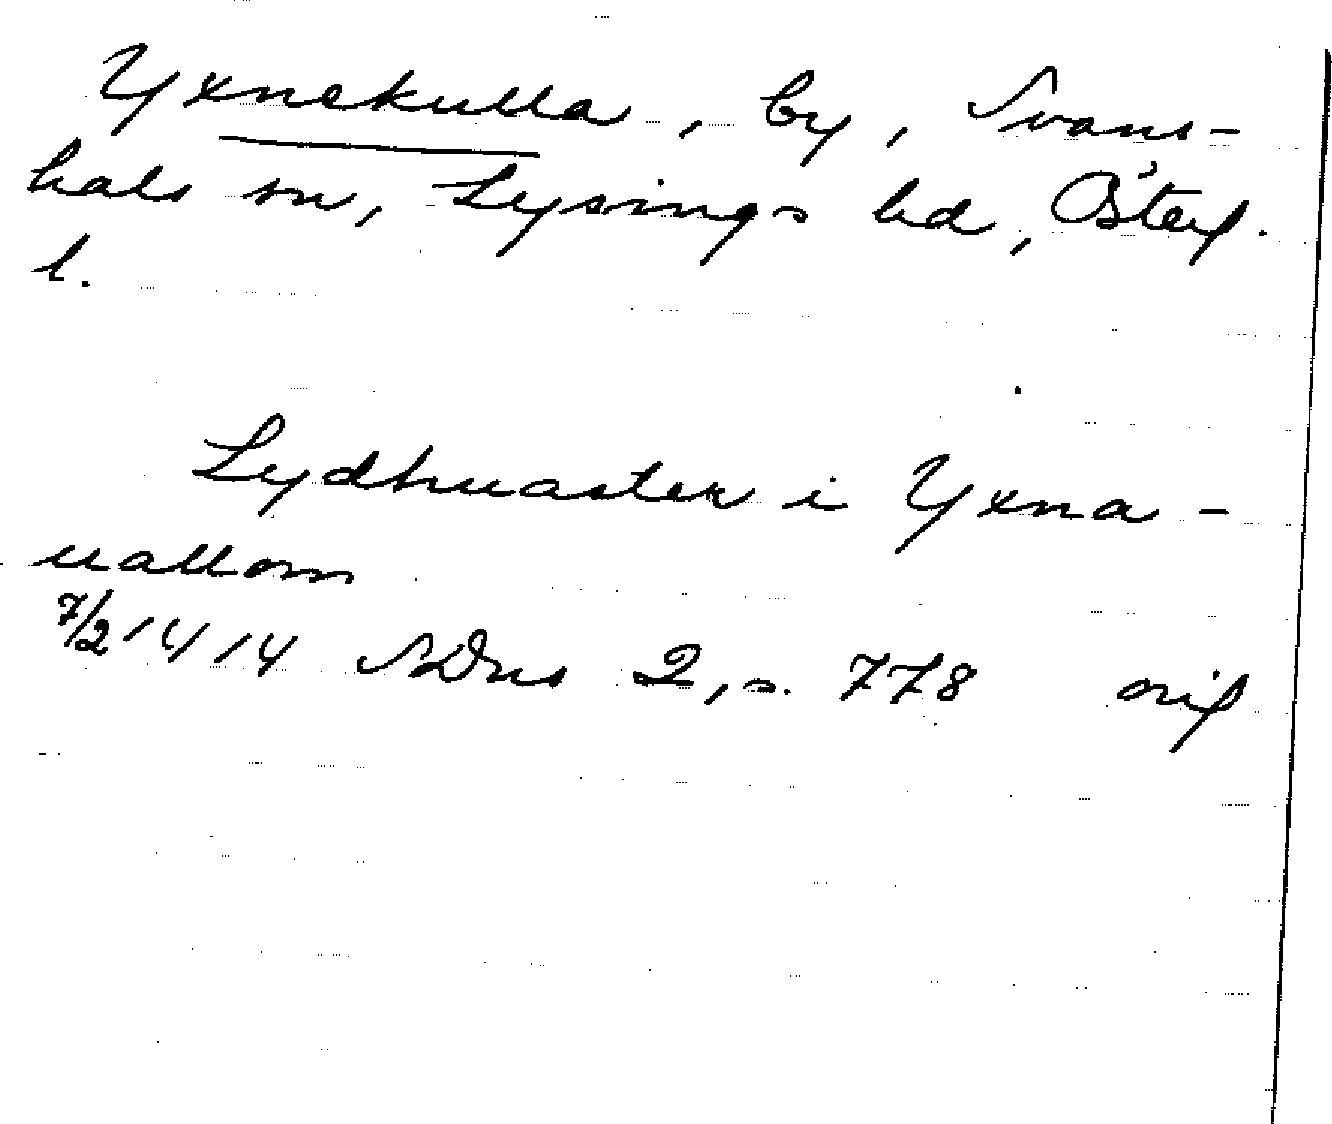 Yxnekulla, by, Svans-
hals sn, Lysings hd, Österg.
l.
Lydhuaster i Yxna-
uallom
7/2 1414 SDns 2, s. 778 orig